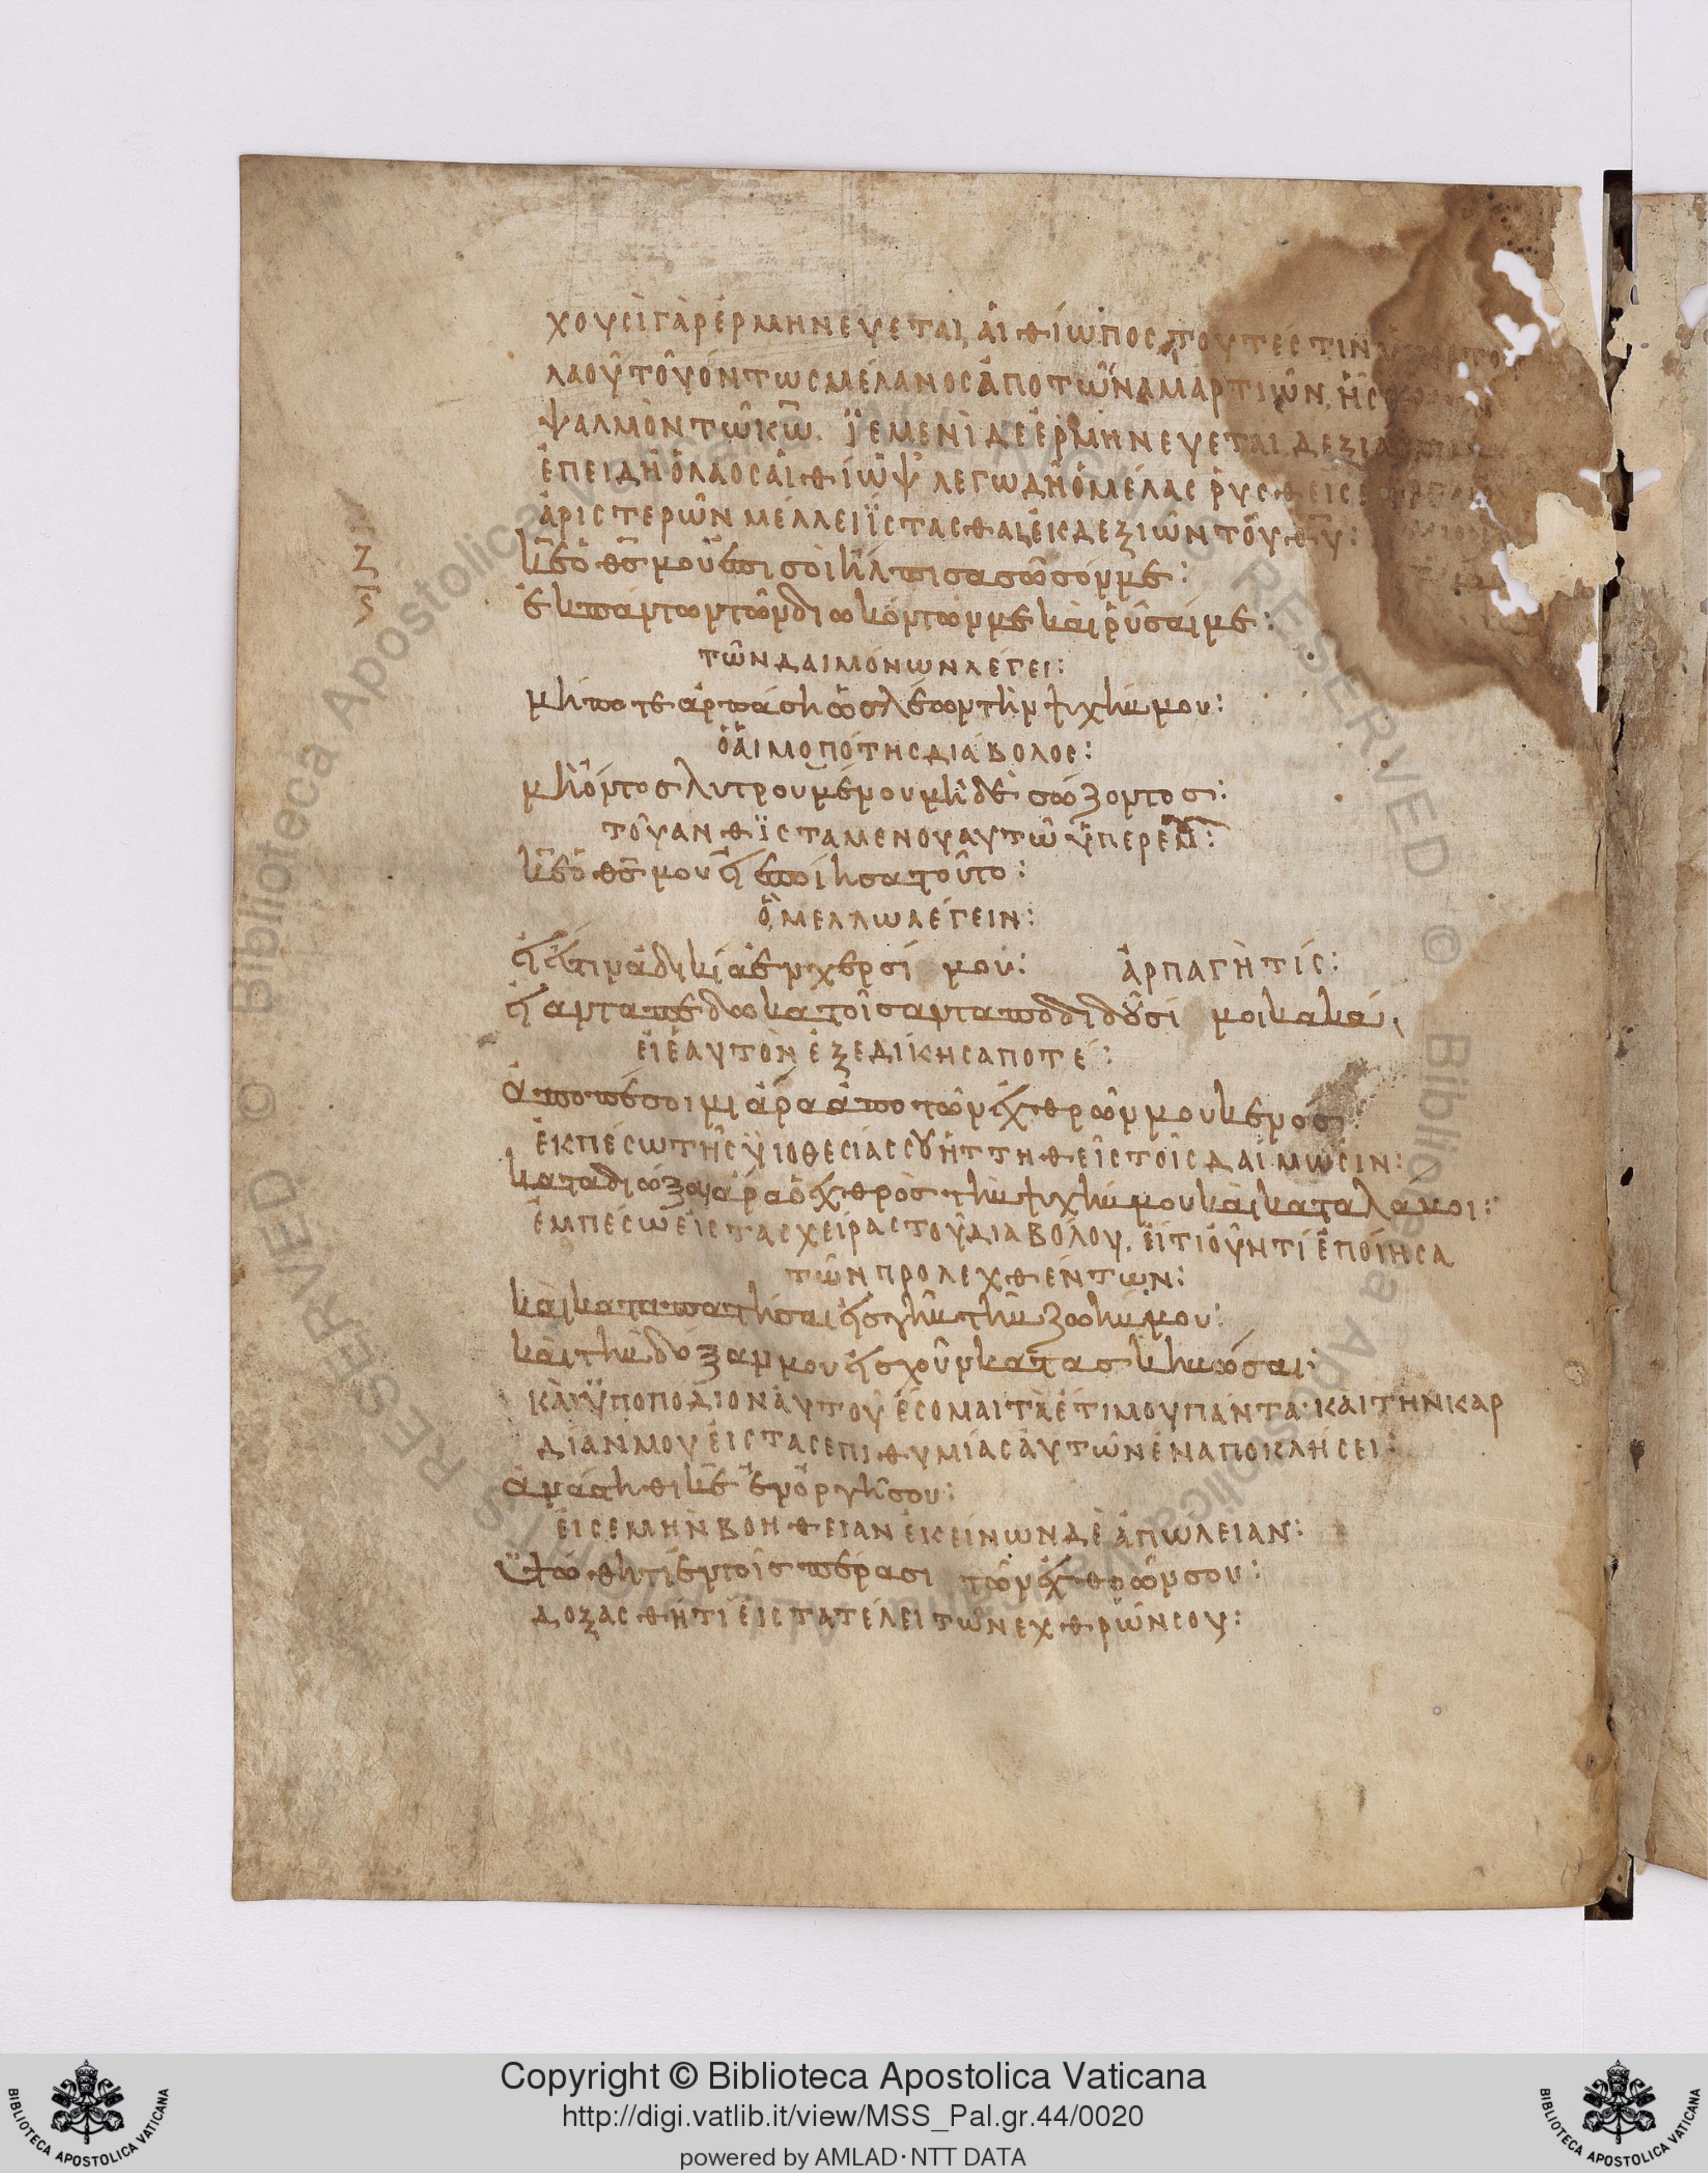 χουσὶ γὰρ ἑρμηνεύεται, αἰθίωπος τουτέστιν
λαοῦ τοῦ ὄντως μέλανος ἀπὸ τῶν ἁμαρτιῶν,
ψαλμὸν τῶ κω. ϊεμενὶ δὲ ἑρμηνεύεται
ἐπειδὴ ὁ λαὸς αἰθίωψ λέγω δὴ ὁ μέλας ῥυσθεὶς
ἀριστερῶν μέλλει ἵστασθαι ἐκ δεξιῶν τοῦ θυ:
κε ὁ θς μου ἐπι σοὶ ἤλπισα σῶσόν με:
ζ
ς
ἐκ πάντων τῶν διωκόντων με καὶ ῥῦσαί με:
τῶν δαιμόνων λέγει:
μήποτε ἁρπάση ὡς λέων τὴν ψυχήν μου:
ὁ αἱμοπότης διάβολος:
μὴ ὄντος λυτρουμένου μηδὲ σώζοντος:
τοῦ ανθϊσταμένου αυτῶ ὑπὲρ ἐμ:
κε ὁ θς μου εἰ ἐποίησα τοῦτο:
ὃ μέλλω λέγειν:
εἰ ἔστιν ἀδικία ἐν χερσί μου: ἁρπαγὴ τίς:
εἰ ανταπέδωκα τοῖς ανταποδιδοῦσί μοι κακά,
εἰ ἑαυτὸν ἐξεδίκησα ποτέ:
ἀποπέσοιμι ἄρα ἀπο τῶν ἐχθρῶν μου κενός:
ἐκπέσω τῆς υἱοθεσίας σοῦ ἡττηθεὶς τοῖς δαίμωσιν:
καταδιώξαι ἄρα ὁ ἐχθρὸς τὴν ψυχήν μου καὶ καταλάβοι:
ἐμπέσω εἰς τας χεῖρας τοῦ διαβόλου, εἴτι οὖν τί ἐποίησα
τῶν προλεχθέντων:
καὶ καταπατήσαι εἰς γῆν τὴν ζωήν μου:
καὶ τὴν δόξαν μου εἰς χοῦν κατασκηνώσαι:
καὶ ὑποπόδιον αὐτοῦ ἔσομαι τὰ ἔτι μου πάντα· καὶ τὴν καρ
δίαν μου εἰς τὰς ἐπιθυμίας αὐτῶν ἐναποκλήσει:
ἀνάστηθι κε ἐν ὀργῆ σου:
εἰς ἐμὴν βοήθειαν ἐκείνων δὲ ἀπώλειαν:
ὑψώθητι ἐν τοῖς πέρασι τῶν ἐχθρῶν σου:
δοξάσθητι εἰς τὰ τέλει τῶν ἐχθρῶν σου:
Copyright © Biblioteca Apostolica Vaticana
http://digi.vatlib.it/view/MSS_Pal.gr.44/0020
powered by AMLAD·NTT DATA
BIBLIOTECA APOSTOLICA VATICANA
BIBLIOTECA APOSTOLICA VATICANA